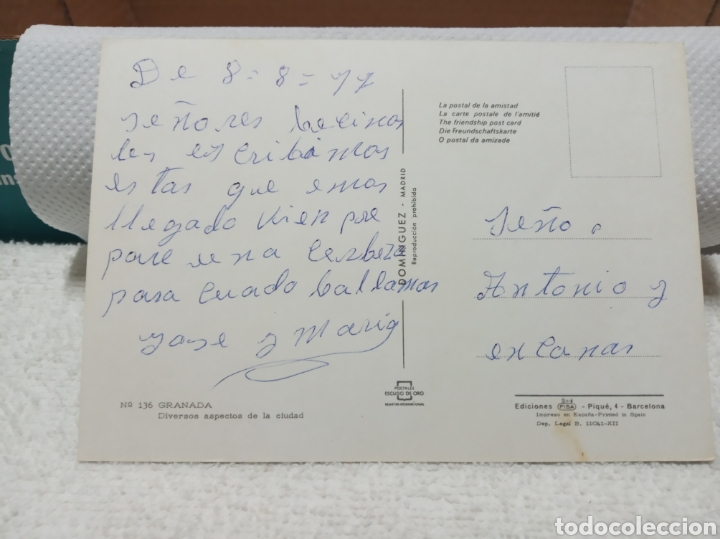 De 8=8=77
señores becinos
les escribimos
estas que emos
llegado bien pre
pare una serbeza
para cuado ballamos
Jose y Maria
La postal de la amistad
La carte postale de l'amitié
The friendship post card
Die Freundschaftskarte
O postal da amizade
DOMINGUEZ - MADRID
Reproducción prohibida
Seño.
Antonio y
POSTALES
ESCUDO DE ORO
Nº 136 GRANADA
Diversos aspectos de la ciudad
Ediciones FISA - Piqué, 4 - Barcelona
Impreso en España-Printed in Spain
Dep. Legal B. 11041-XII
todocoleccion